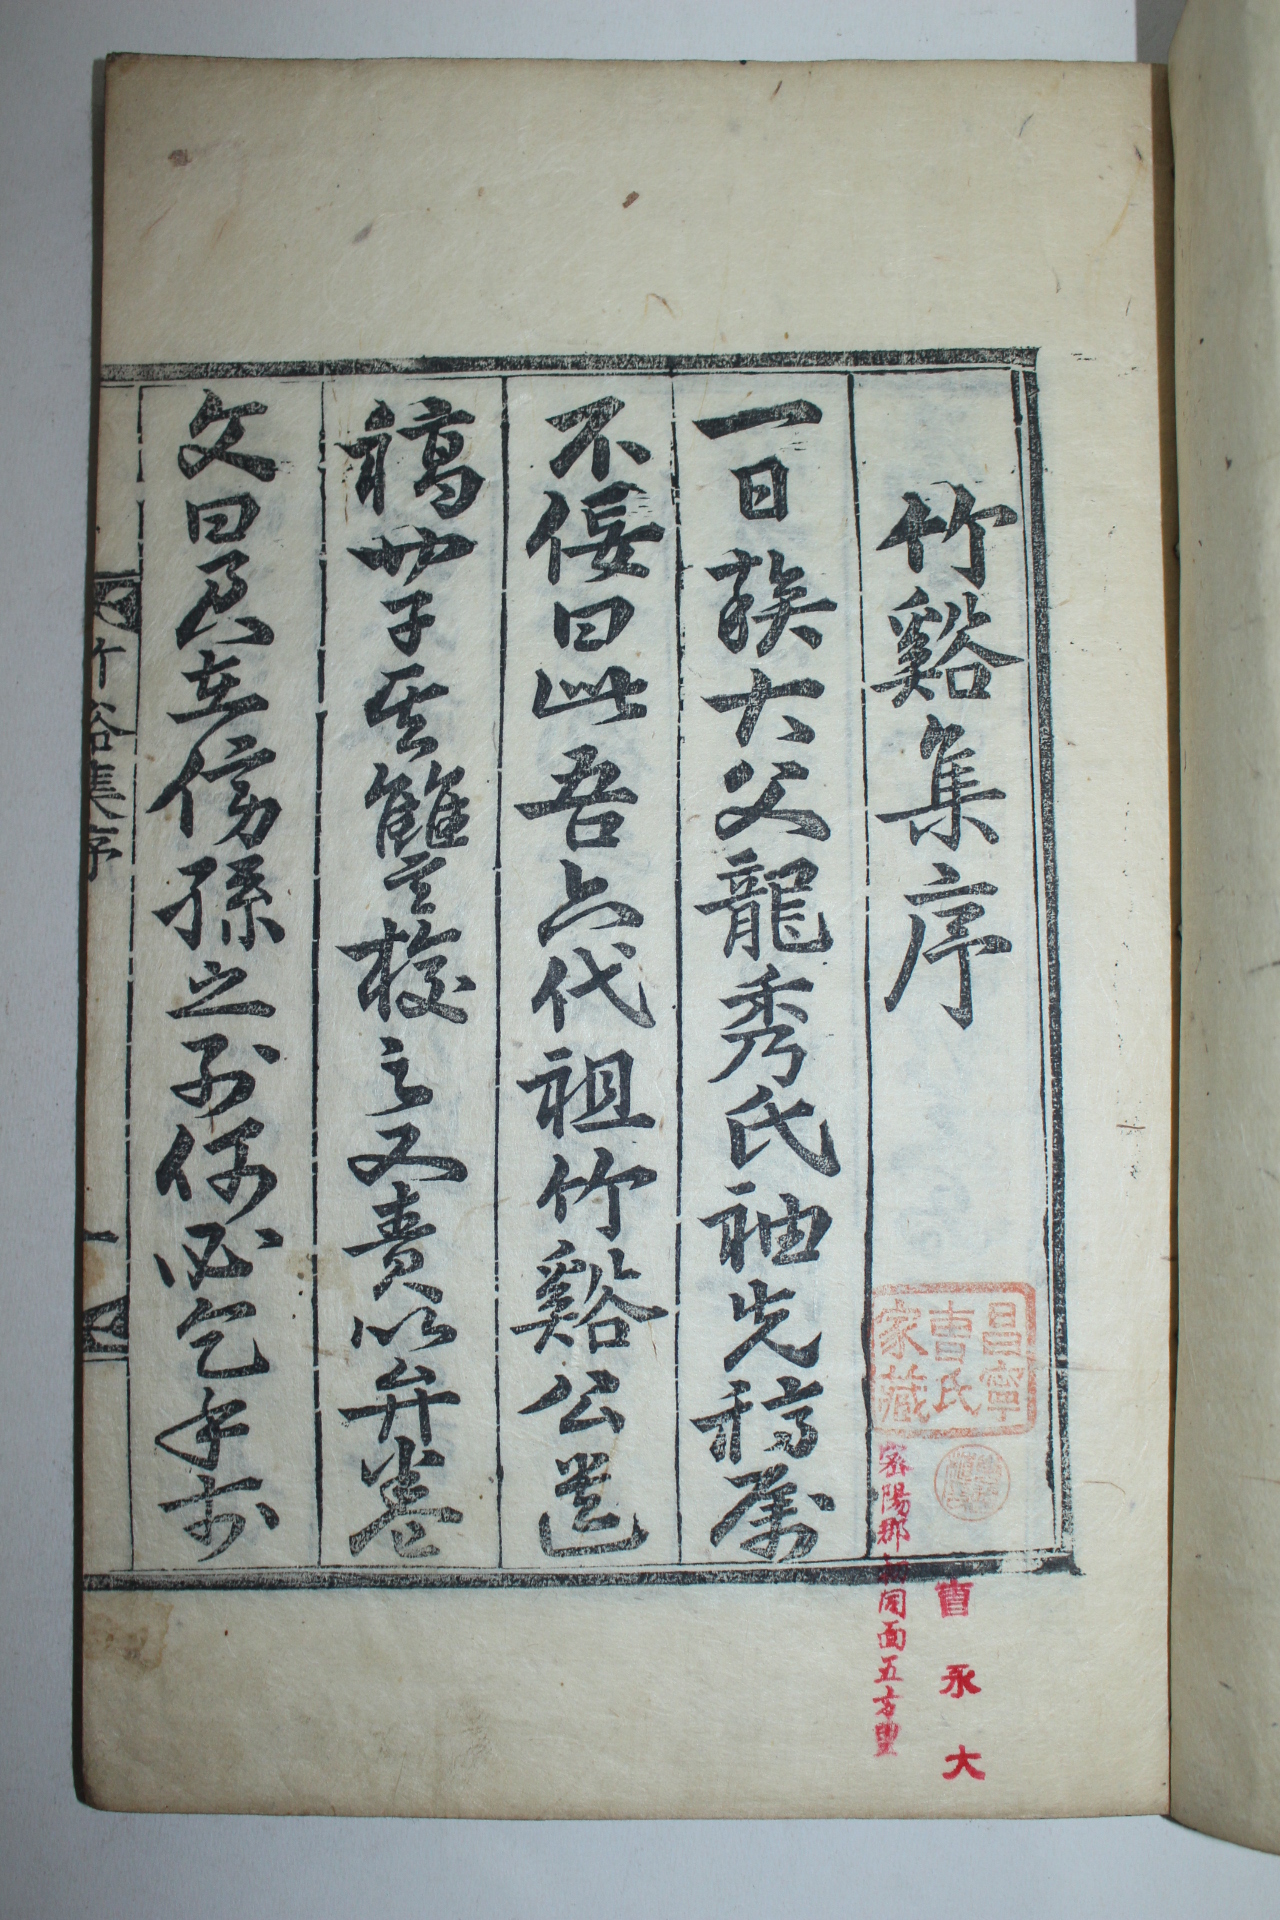 竹谿集序
一日族大父龍秀氏袖先稿属
不佞曰此吾六代祖竹谿公遺
稿也子其讎之校之又責以弁卷
文曰 在傍孫之列何必乞手於
竹谿集序
一
昌寧
曹氏
家藏
曹永大
密陽郡 同面五方里